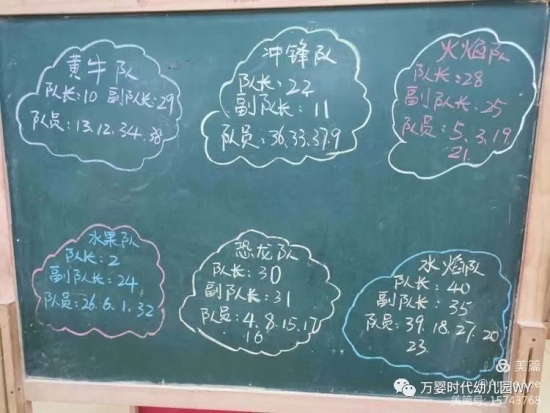 黄牛队
队长:10 副队长:29
队员:13.12.34.38
冲锋队
队长:22
副队长:11
队员:36.33.37.9
火焰队
队长:28
副队长:25
队员:5.3.19
21.
水果队
队长:2
副队长:24
队员:26.6.1.32
恐龙队
队长:30
副队长:31
队员:4.8.15.17
16
水焰队
队长:40
副队长:35
队员:39.18.27.20
23
美篇
万婴时代幼儿园WY
美篇号:15743768